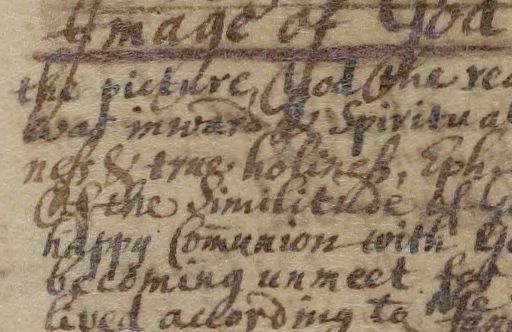 Image of God
the picture, God the rea
was inward & Spiritual
ness & true holiness, Eph.
of the Similitude of G
happy Comunion with
becoming unmeet for
lived according to